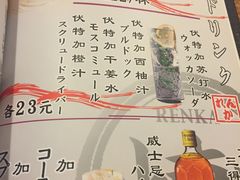 ドリンク
伏特加苏打水
ウォッカソーダ
伏特加西柚汁
ブルドック
伏特加干姜水
モスコミュール
伏特加橙汁
スクリュードライバー
各23元
RENKA
れんが
威士忌
三得
コー
加